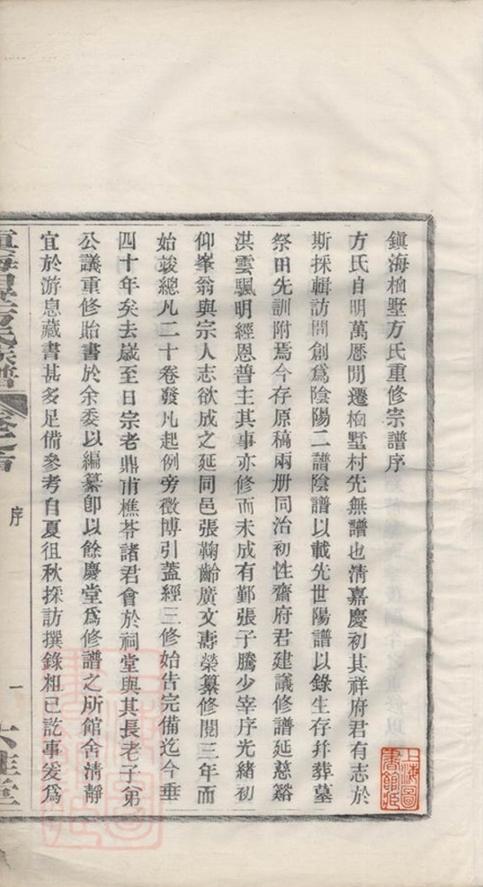 鎮海柏墅方氏重修宗譜序
方氏自明萬厯閒遷柏墅村先無譜也清嘉慶初其祥府君有志於
斯採輯訪問創爲陰陽二譜陰譜以載先世陽譜以錄生存幷葬墓
祭田先訓附焉今存原稿兩册同治初性齋府君建議修譜延慈谿
洪雲颿明經恩普主其事亦修而未成有鄞張子騰少宰序光緒初
仰峯翁與宗人志欲成之延同邑張鞠齡廣文壽榮纂修閱三年而
始竣總凡二十卷發凡起例旁徵博引蓋經三修始告完備迄今垂
四十年矣去歲至日宗老鼎甫樵苓諸君會於祠堂與其長老子弟
公議重修貽書於余委以編纂卽以餘慶堂爲修譜之所館舍淸靜
宜於游息藏書甚多足備參考自夏徂秋採訪撰錄粗已訖事爰爲
鎮海柏墅方氏族譜 卷之首 序 一 六桂堂
上海圖書館藏